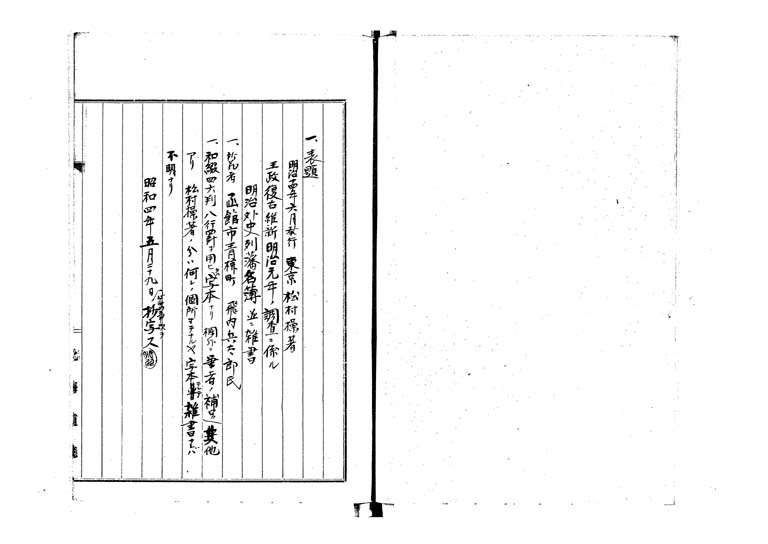 一、表題
明治十四年六月発行 東京 松村操著
王政復古維新明治元年ノ調査ニ係ル
明治外史列藩名簿 並ニ雑書
一、所有者 函館市青柳町 飛内兵太郎氏
一、和綴四六判八行罫ヲ用ヒ写本ナリ 欄外ニ筆者ノ補 其他
アリ 松村操著ノ分ハ何レノ個所マデナルヤ写本 雑書マデハ
不明ナリ
昭和四年五月二十九日 抄写ス